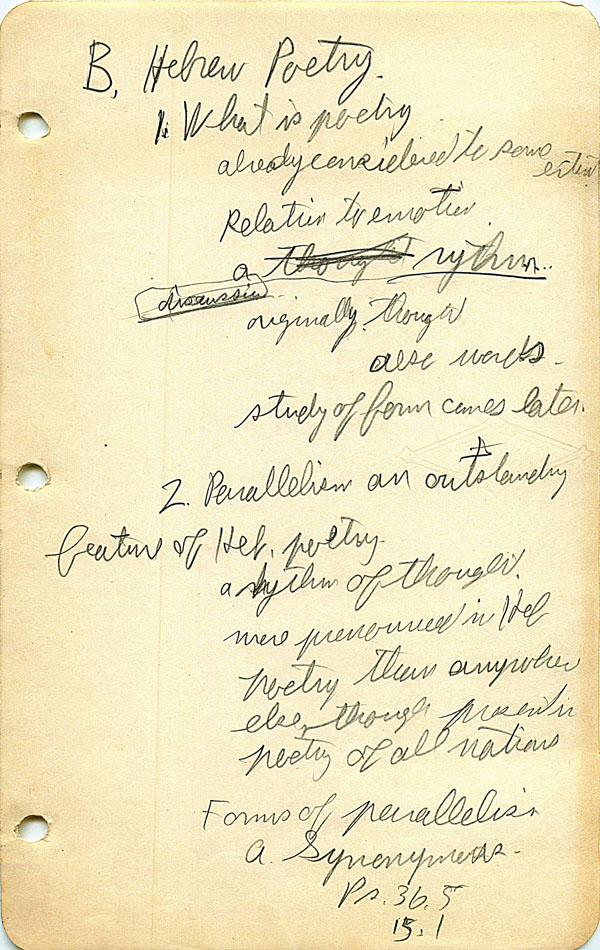 B. Hebrew Poetry.
1. What is poetry
already considered to some
extent
Relation to emotion
a thought rythm.
discussion
originally, though
also words.
study of form comes later.
2. Parallelism an outstanding
feature of Heb. poetry.
a rythm of thought.
more pronounced in Heb
poetry than anywhere
else, though present in
poetry of all nations
Forms of parallelism
a. Synonymous.
Ps. 36.5
15.1